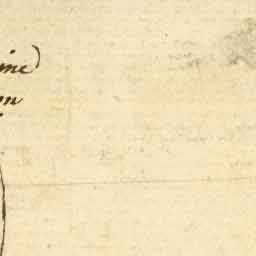 ine
on